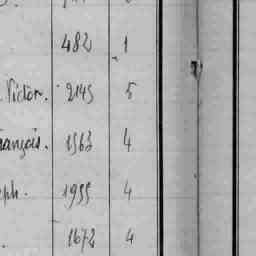 482 1
Victor. 2145 5
rançois. 1563 4
eph. 1955 4
1672 4